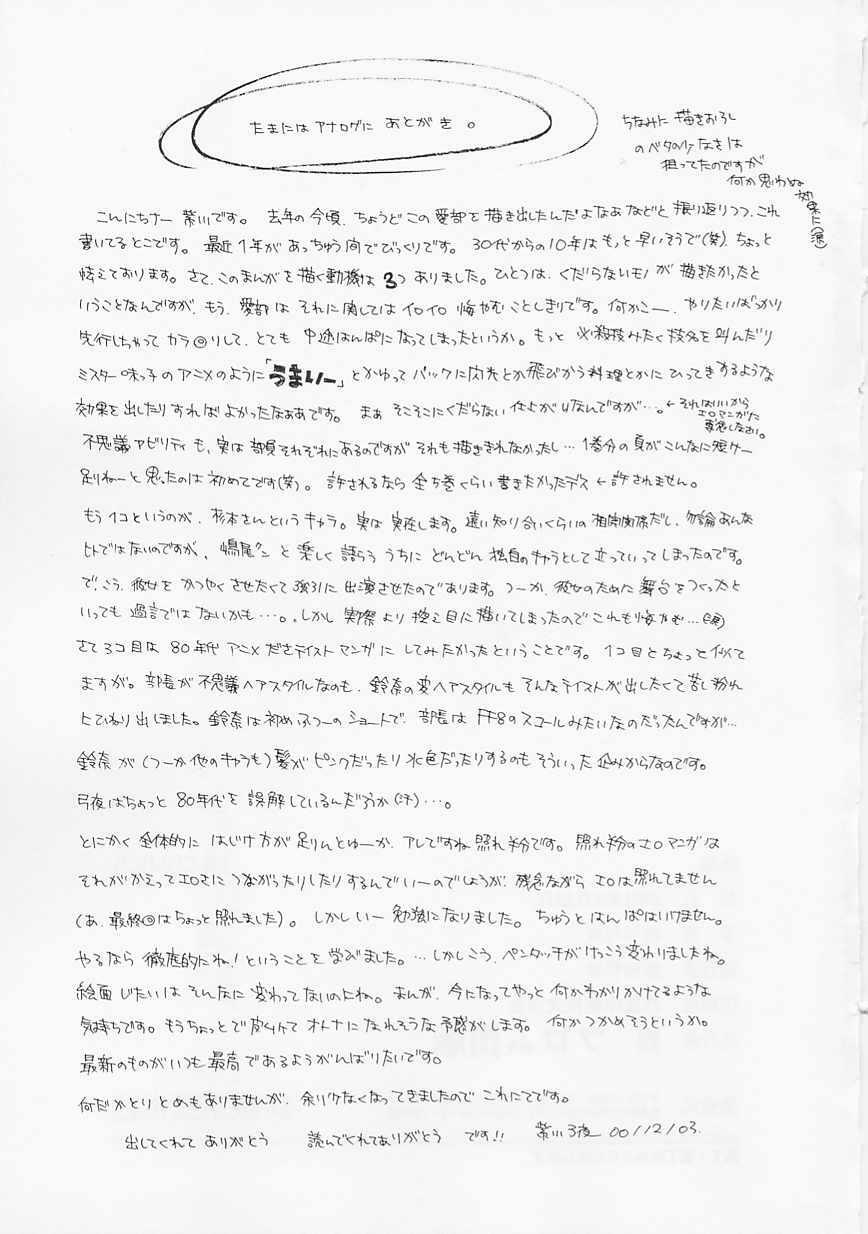 たまにはアナログに あとがき。
ちなみに 描きおろし
のベタのりなさは
狙ってたのですが
何か思わぬ
効果に(涙)
こんにちナー 紫川です。 去年の今頃、ちょうどこの愛部を描き出したんだよなあなどと 振り返りつつ、これ
書いてるとこです。 最近1年があっちゅう間でびっくりです。 30代からの10年はもっと早いそうで(笑)、ちょっと
怯えております。さて、このまんがを描く動機は 3つ ありました。ひとつは、くだらないモノが描きたかったと
いうことなんですが、もう、愛部は それに関しては イロイロ 悔やむことしきりです。何かこー、やりたいばっかり
先行しちゃって カラ回りして、とても 中途はんぱになってしまったというか。もっと 必殺技みたく技名を叫んだり
ミスター味っ子のアニメのように「うまいー」とかゆってバックに閃光とか飛びかう料理とかにひってきするような
効果を出したりすればよかったなぁあです。 まぁ そこそこにくだらない 仕上がりなんですが…。←それはいいから
エロマンガだ
妄想しなさい。
不思議アビリティも、実は 部員それぞれにあるのですが それも描ききれなかったし… 1巻分の頁がこんなに短けー
足りねーと思ったのは初めてです(笑)。 許されるなら 全5巻くらい書きたかったデス ← 許されません。
もう1コというのが、杉本さんというキャラ。実は 実在します。遠い知り合いくらいの相関関係だし、勿論あんな
ヒトではないのですが、嶋尾クン と 楽しく語らううちに どんどん 独自のキャラとして立っていってしまったのです。
で、こう、彼女を かつやくさせたくて 強引に 出演させたのであります。つーか、彼女のために 舞台をつくったと
いっても 過言では ないかも…。しかし 実際より 控え目に描いてしまったのでこれも悔やむ…(涙)
さて3コ目は 80年代 アニメ ださテイスト マンガに してみたかったということです。 1コ目とちょっと似て
ますが。部長が不思議ヘアスタイルなのも、鈴奈の変ヘアスタイルも そんなテイストが出したくて苦し紛れ
にひねり出しました。鈴奈は初めふつーのショートで、部長は FF8のスコールみたいなのだったんですが…
鈴奈が(つーか他のキャラも)髪がピンクだったり水色だったりするのもそういった 企みからなのです。
弓夜はちょっと 80年代を 誤解しているんだろうか(汗)…。
とにかく 全体的に はじけ方が 足りんとゆーか、アレですね照れ半分です。 照れ半分のエロマンガは
それがかえってエロさに つながったりしたりするんで いーのでしょうが、残念ながら エロは照れてません
(あ、最終回はちょっと 照れました)。 しかし いー 勉強になりました。ちゅうとはんぱはいけません。
やるなら 徹底的にね!ということを学びました。… しかしこう、ペンタッチがけっこう変わりましたね。
絵画じたいは そんなに 変わってないのにね。まんが、今になってやっと 何かわかりかけてるような
気持ちです。もうちょっとで 皮むけて オトナに なれそうな 予感がします。 何かつかめそうというか。
最新のものがいつも最高であるようがんばりたいです。
何だかとりとめもありませんが、余りなくなってきましたので これにてです。
出してくれて ありがとう 読んでくれてありがとう です!! 紫川弓夜 00/12/03.